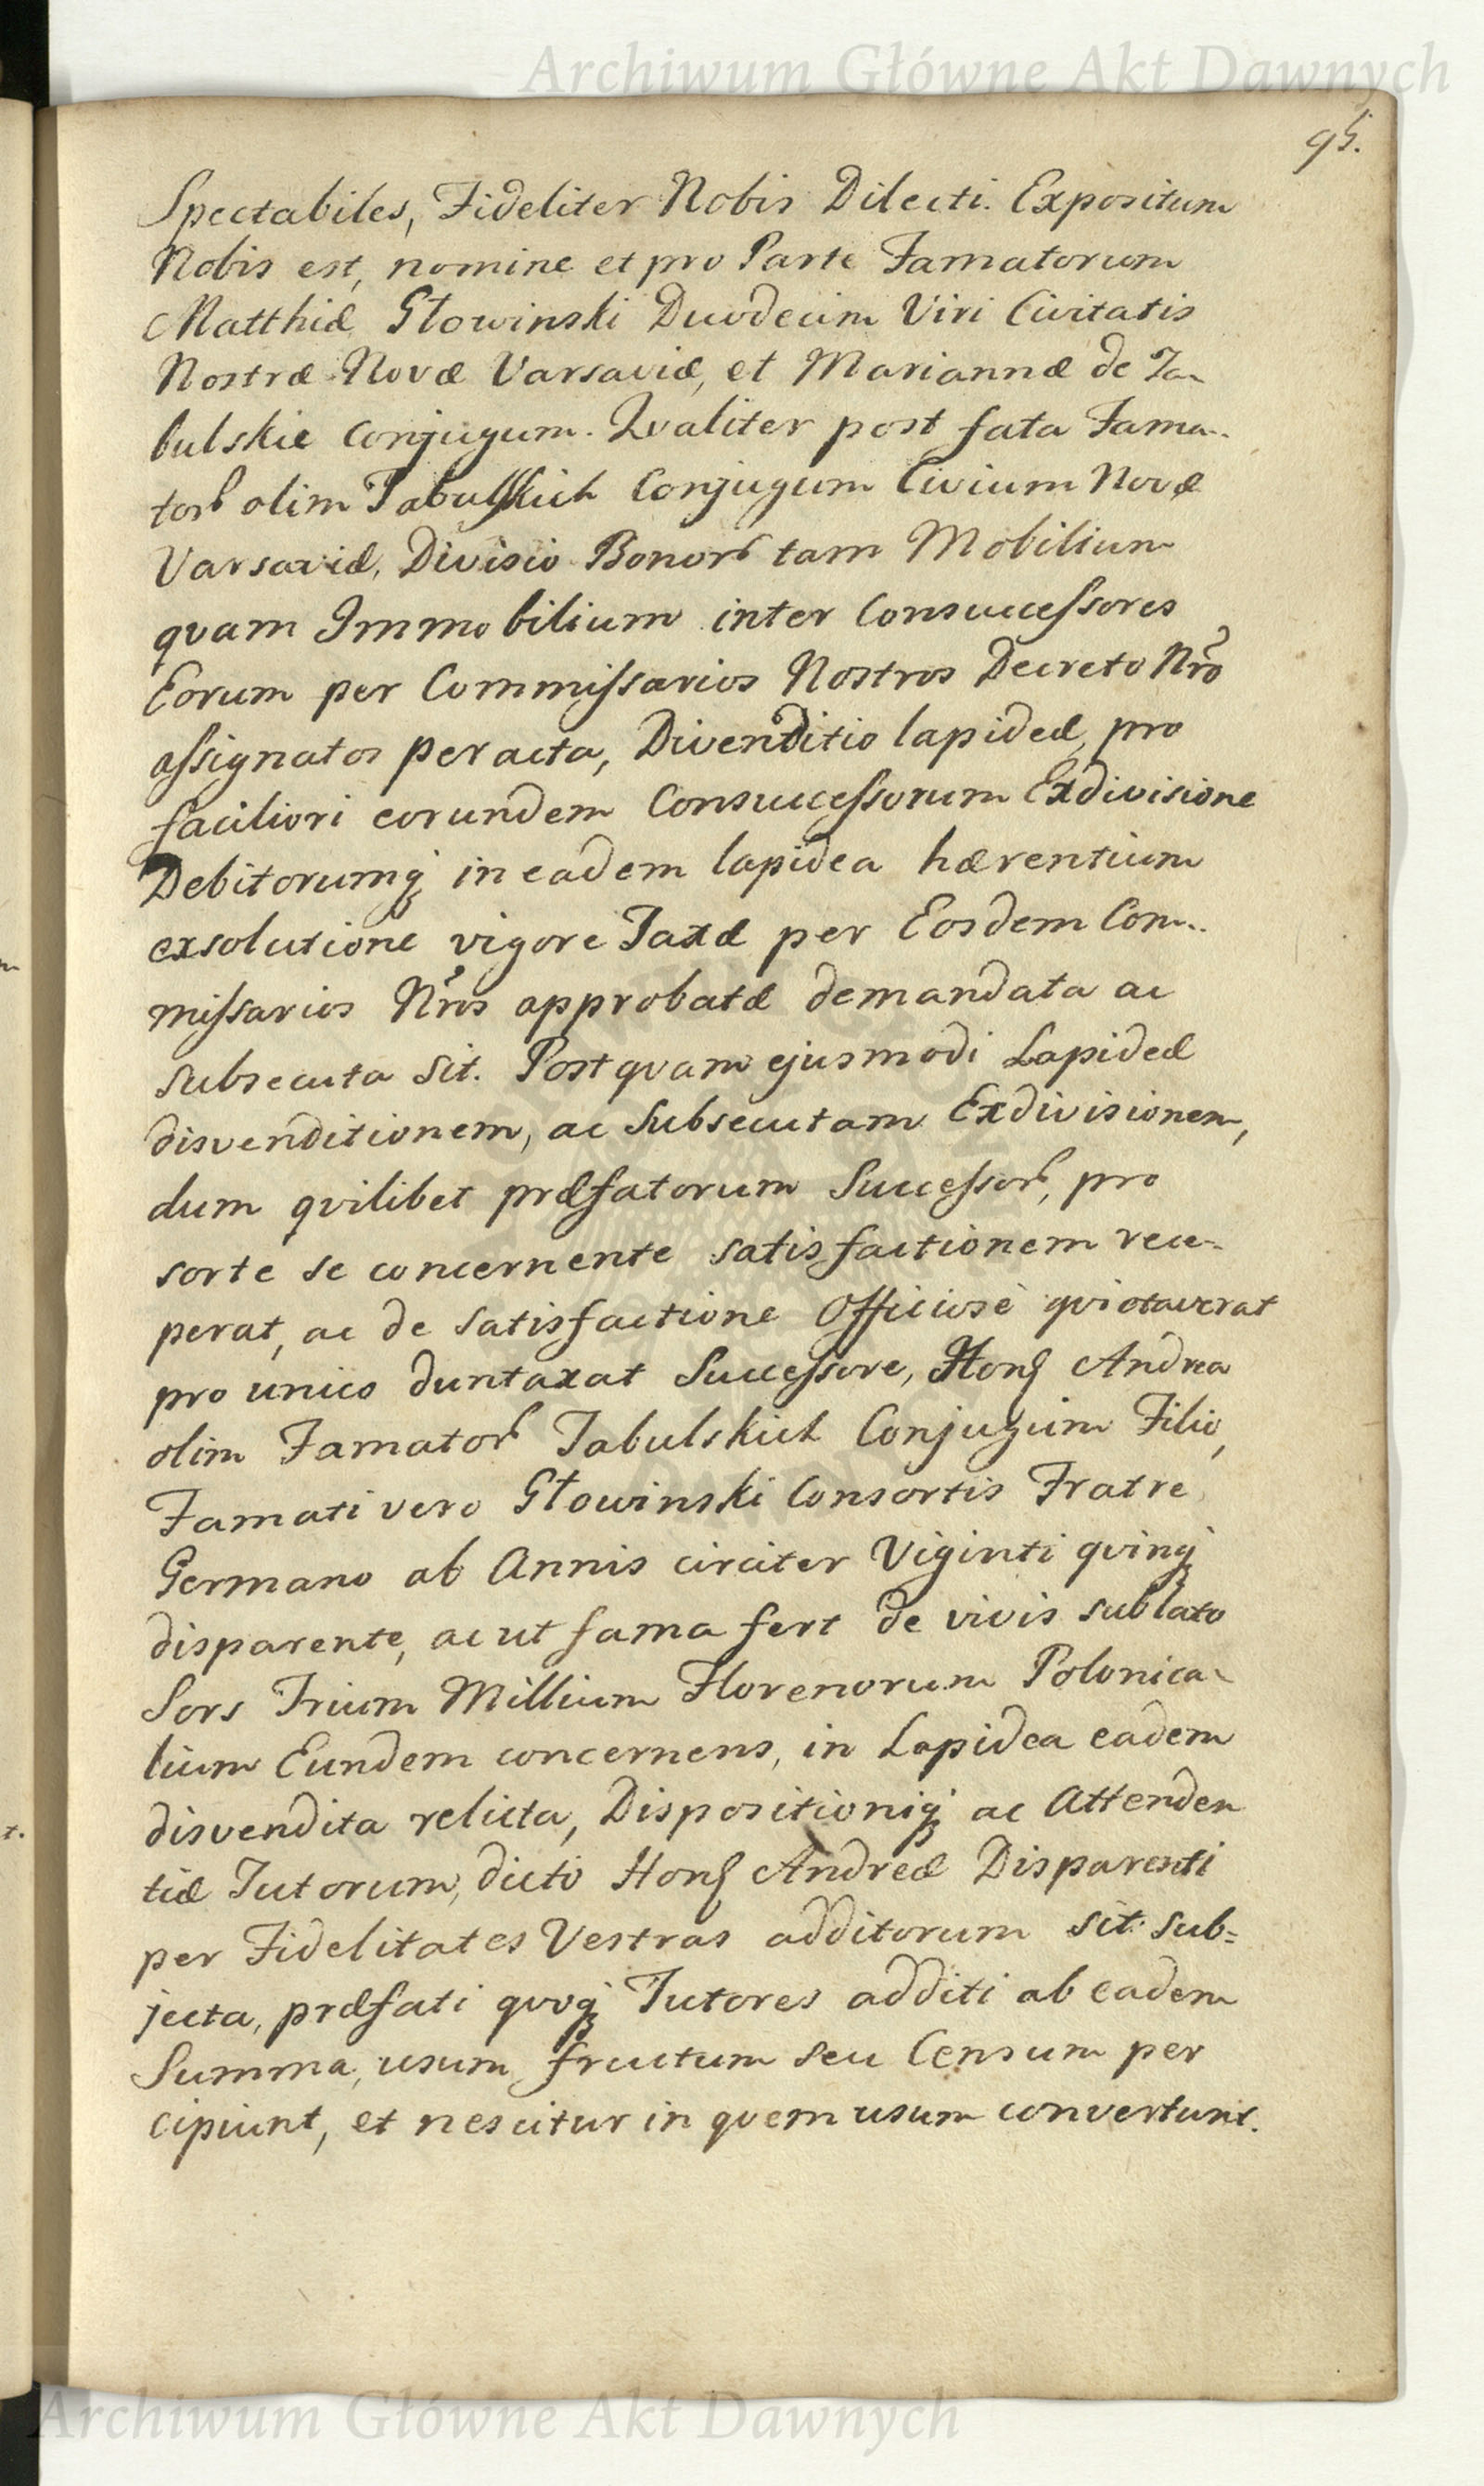 Archiwum Główne Akt Dawnych
95.
Spectabiles, Fideliter Nobis Dilecti. Expositum
Nobis est, nomine et pro Parte Famatorum
Matthiæ Głowinski Duodecim Viri Civitatis
Nostræ Novæ Varsaviæ, et Mariannæ de Ta-
bulskie Conjugum. Qvaliter post fata Fama-
torũ olim Tabulskich Conjugum Civium Novæ
Varsaviæ, Divisio Bonorũ tam Mobilium
qvam Immobilium inter Consuccessores
Eorum per Commissarios Nostros Decreto Nr̃o
assignatos peracta, Divenditio lapideæ, pro
faciliori eorundem Consuccessorum Exdivisione
Debitorumq; in eadem lapidea hærentium
exsolutione vigore Taxæ per Eosdem Com-
missarios Nr̃os approbatæ demandata ac
subsecuta sit. Post qvam ejusmodi Lapideæ
disvenditionem, ac Subsecutam Exdivisionem,
dum qvilibet præfatorum Successorũ, pro
sorte se concernente satisfactionem rece-
perat, ac de Satisfactione Officiosè qvietaverat
pro unico duntaxat Successore, Honę Andrea
olim Famatorũ Tabulskich Conjugum Filio,
Famati vero Głowinski Consortis Fratre
Germano ab Annis circiter Viginti qvinq;
disparente, ac ut fama fert de vivis sublato
Sors Trium Millium Florenorum Polonica-
lium Eundem concernens, in Lapidea eadem
disvendita relicta, Dispositioniq; ac Attenden
tiæ Tutorum, dicto Honę Andreæ Disparenti
per Fidelitates Vestras additorum sit sub=
jecta, præfati qvoq; Tutores additi ab eadem
Summa, usum fructum seu Censum per
cipiunt, et nescitur in qvem usum convertunt.
Archiwum Główne Akt Dawnych